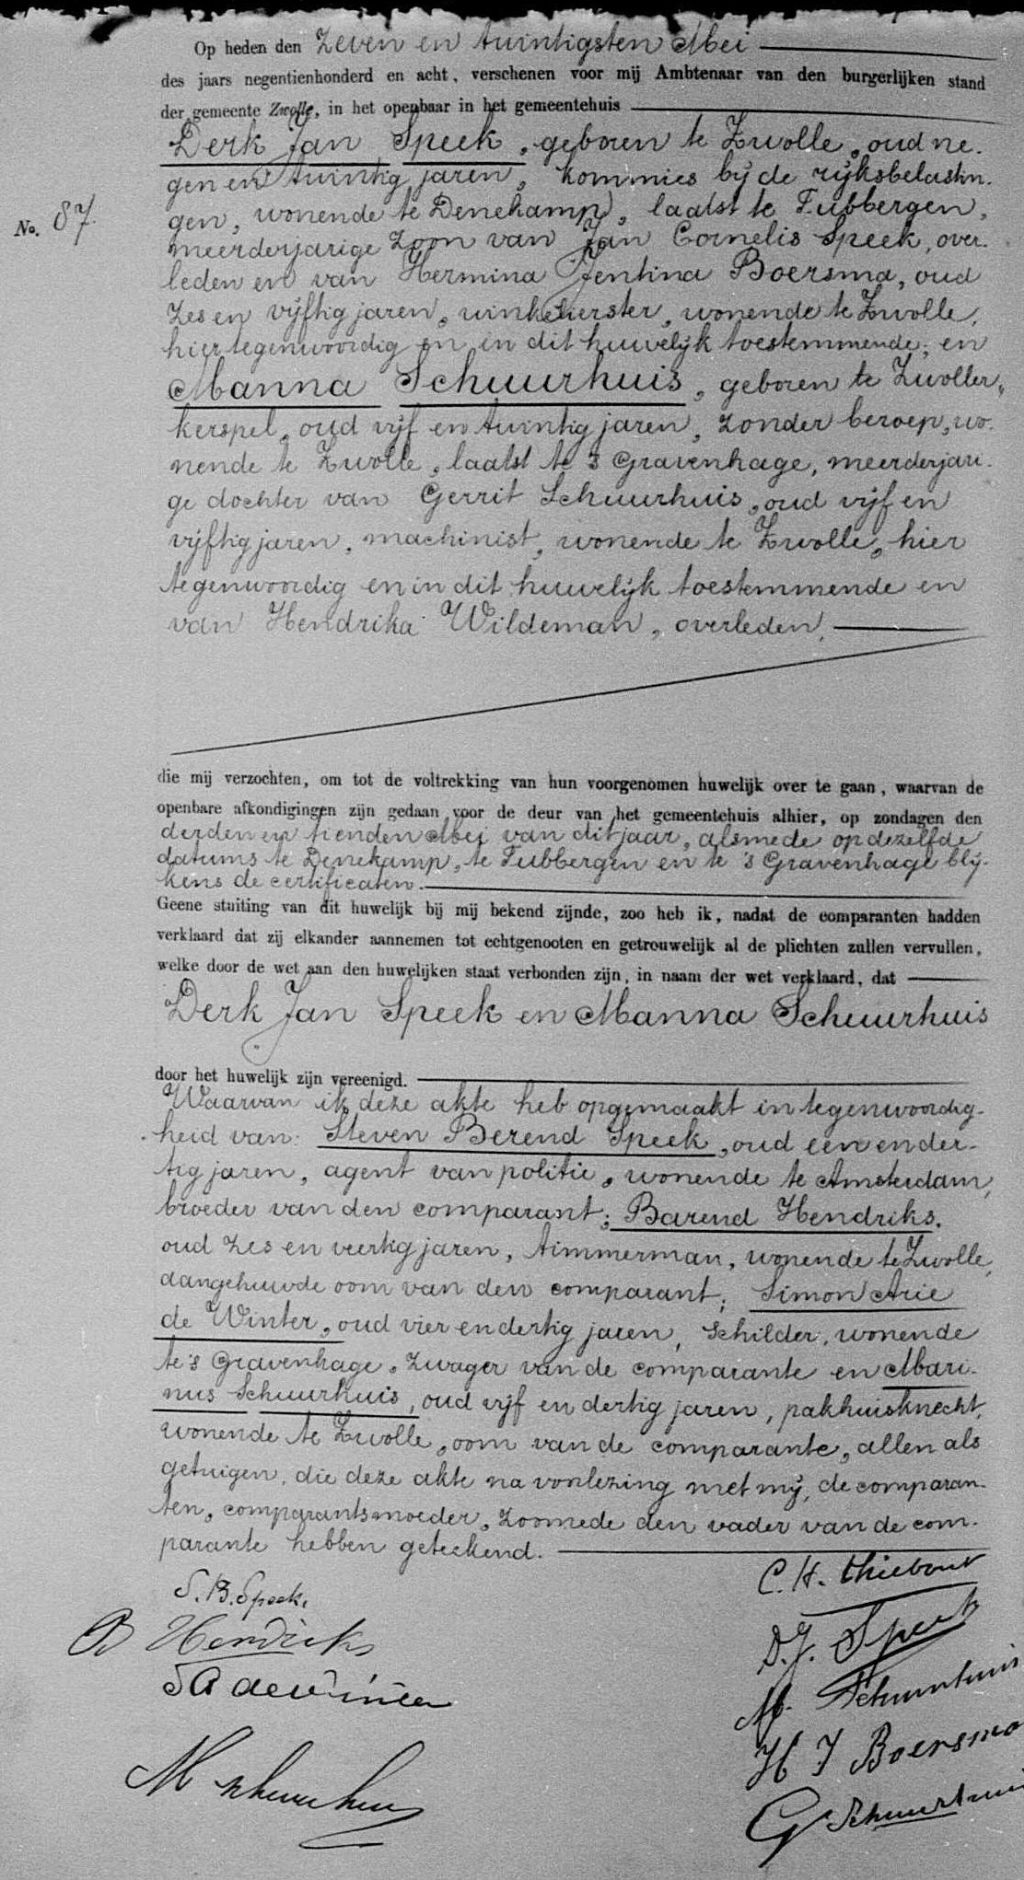 Op heden den zeven en twintigsten Mei
des jaars negentienhonderd en acht, verschenen voor mij Ambtenaar van den burgerlijken stand
der gemeente Zwolle, in het openbaar in het gemeentehuis
Derk Jan Speek, geboren te Zwolle, oud ne-
gen en twintig jaren, kommies bij de rijksbelastin-
No. 87.
gen, wonende te Denekamp, laatst te Tubbergen,
meerderjarige zoon van Jan Cornelis Speek, over-
leden en van Hermina Jentina Boersma, oud
zes en vijftig jaren, winkelierster, wonende te Zwolle,
hier tegenwoordig en in dit huwelijk toestemmende; en
Manna Schuurhuis, geboren te Zwoller-
kerspel, oud vijf en twintig jaren, zonder beroep, wo-
nende te Zwolle, laatst te 's Gravenhage, meerderjari-
ge dochter van Gerrit Schuurhuis, oud vijf en
vijftig jaren, machinist, wonende te Zwolle, hier
tegenwoordig en in dit huwelijk toestemmende en
van Hendrika Wildeman, overleden,
die mij verzochten, om tot de voltrekking van hun voorgenomen huwelijk over te gaan, waarvan de
openbare afkondigingen zijn gedaan voor de deur van het gemeentehuis alhier, op zondagen den
derden en tienden Mei van dit jaar, alsmede op dezelfde
datums te Denekamp, te Tubbergen en te 's Gravenhage blij-
kens de certificaten.
Geene stuiting van dit huwelijk bij mij bekend zijnde, zoo heb ik, nadat de comparanten hadden
verklaard dat zij elkander aannemen tot echtgenooten en getrouwelijk al de plichten zullen vervullen,
welke door de wet aan den huwelijken staat verbonden zijn, in naam der wet verklaard, dat
Derk Jan Speek en Manna Schuurhuis
door het huwelijk zijn vereenigd.
Waarvan ik deze akte heb opgemaakt in tegenwoordig-
heid van: Steven Berend Speek, oud een en der-
tig jaren, agent van politie, wonende te Amsterdam,
broeder van den comparant; Barend Hendriks,
oud zes en veertig jaren, timmerman, wonende te Zwolle,
aangehuwde oom van den comparant; Simon Arie
de Winter, oud vier en dertig jaren, schilder, wonende
te 's Gravenhage, zwager van de comparante en Mari-
nus Schuurhuis, oud vijf en dertig jaren, pakhuisknecht,
wonende te Zwolle, oom van de comparante, allen als
getuigen, die deze akte na voorlezing met mij, de comparan-
ten, comparantsmoeder, zoomede den vader van de com-
parante hebben geteekend.
C. H. Thiebout
S. B. Speek.
D. J. Speek
B Hendriks
M. Schuurhuis
S A de Winter
H J Boersma
M Schuurhuis
G Schuurhuis